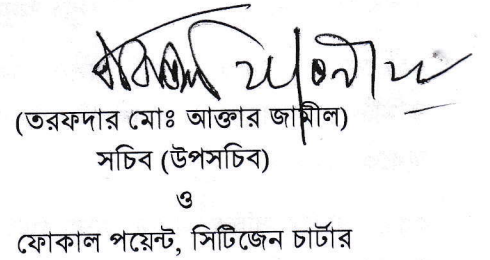 (তরফদার মোঃ আক্তার জামীল)
সচিব (উপসচিব)
ও
ফোকাল পয়েন্ট, সিটিজেন চার্টার